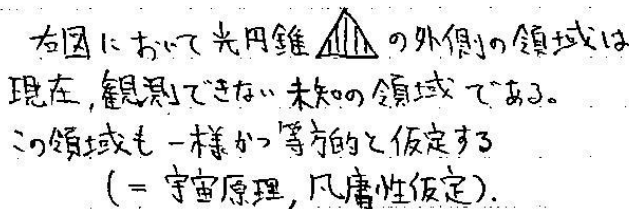 右図において光円錐 の外側の領域は
現在,観測できない未知の領域である。
この領域も一様かつ等方的と仮定する
(= 宇宙原理, 凡庸性仮定).